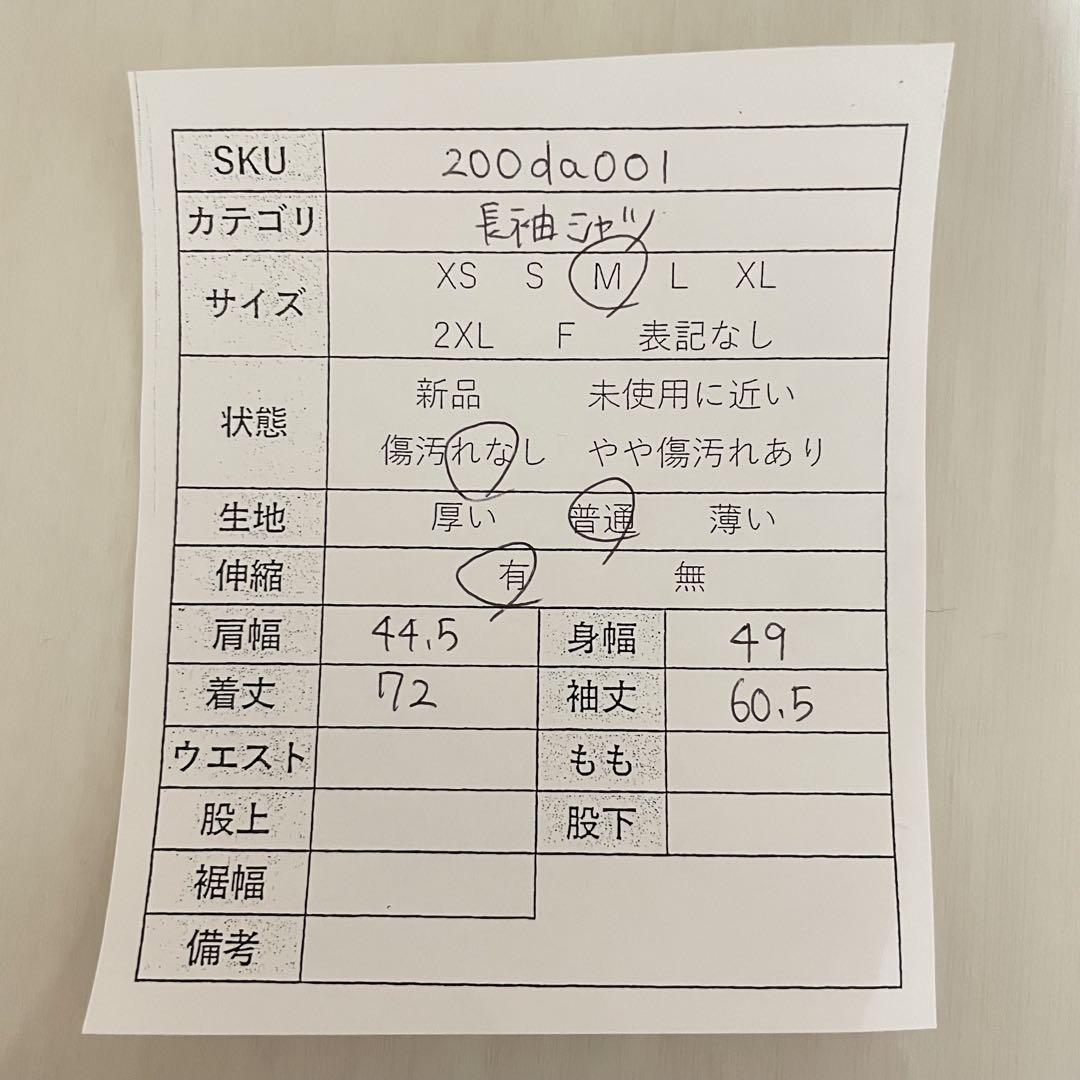 SKU 200da001
カテゴリ 長袖シャツ
サイズ XS S M L XL
2XL F 表記なし
状態 新品 未使用に近い
傷汚れなし やや傷汚れあり
生地 厚い 普通 薄い
伸縮 有 無
肩幅 44.5 身幅 49
着丈 72 袖丈 60.5
ウエスト もも
股上 股下
裾幅
備考